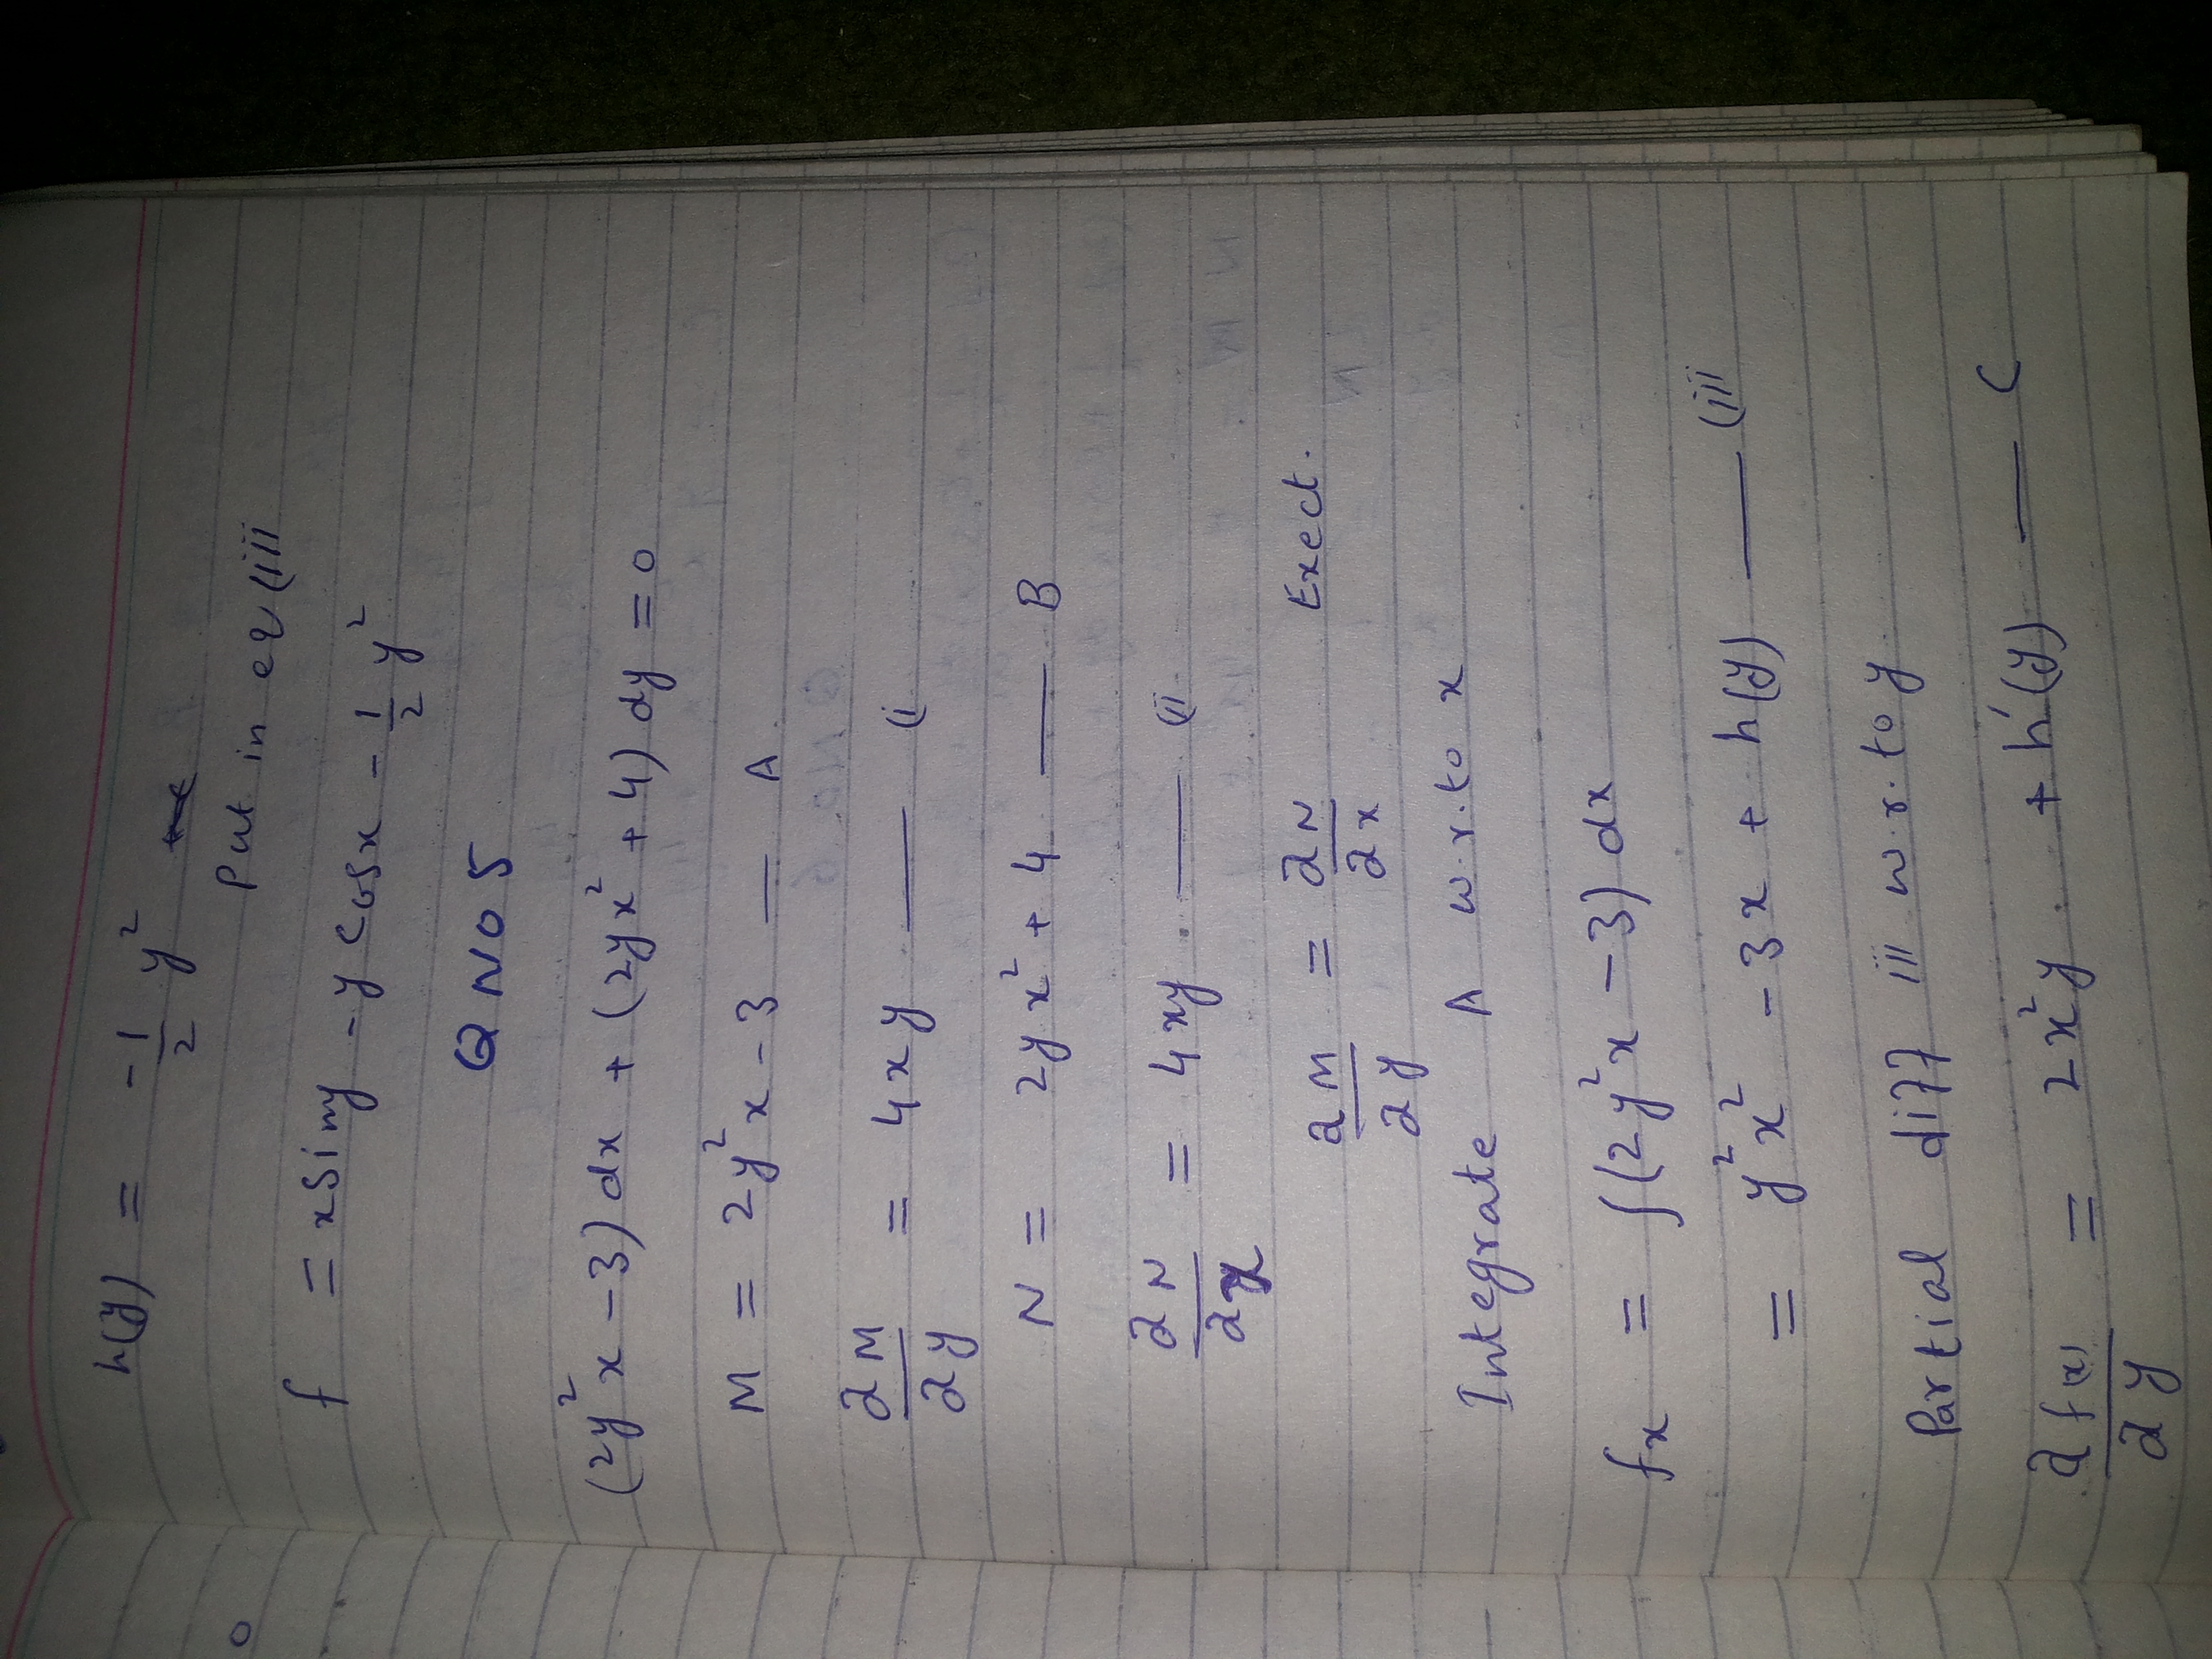 o
h(y) = -1/2 y²
Put in eq (iii
f = xSiny - y Cosx - 1/2 y²
Q NO 5
(2y²x - 3) dx + (2yx² + 4) dy = 0
M = 2y²x - 3 — A
∂M/∂y = 4xy — (i
N = 2yx² + 4 — B
∂N/∂x = 4xy — (ii
∂M/∂y = ∂N/∂x Exect.
Integrate A w.r.to x
fx = ∫(2y²x - 3) dx
= y²x² - 3x + h(y) — (iii
Partial diff iii w.r.to y
∂f(x)/∂y = 2x²y + h'(y) — C